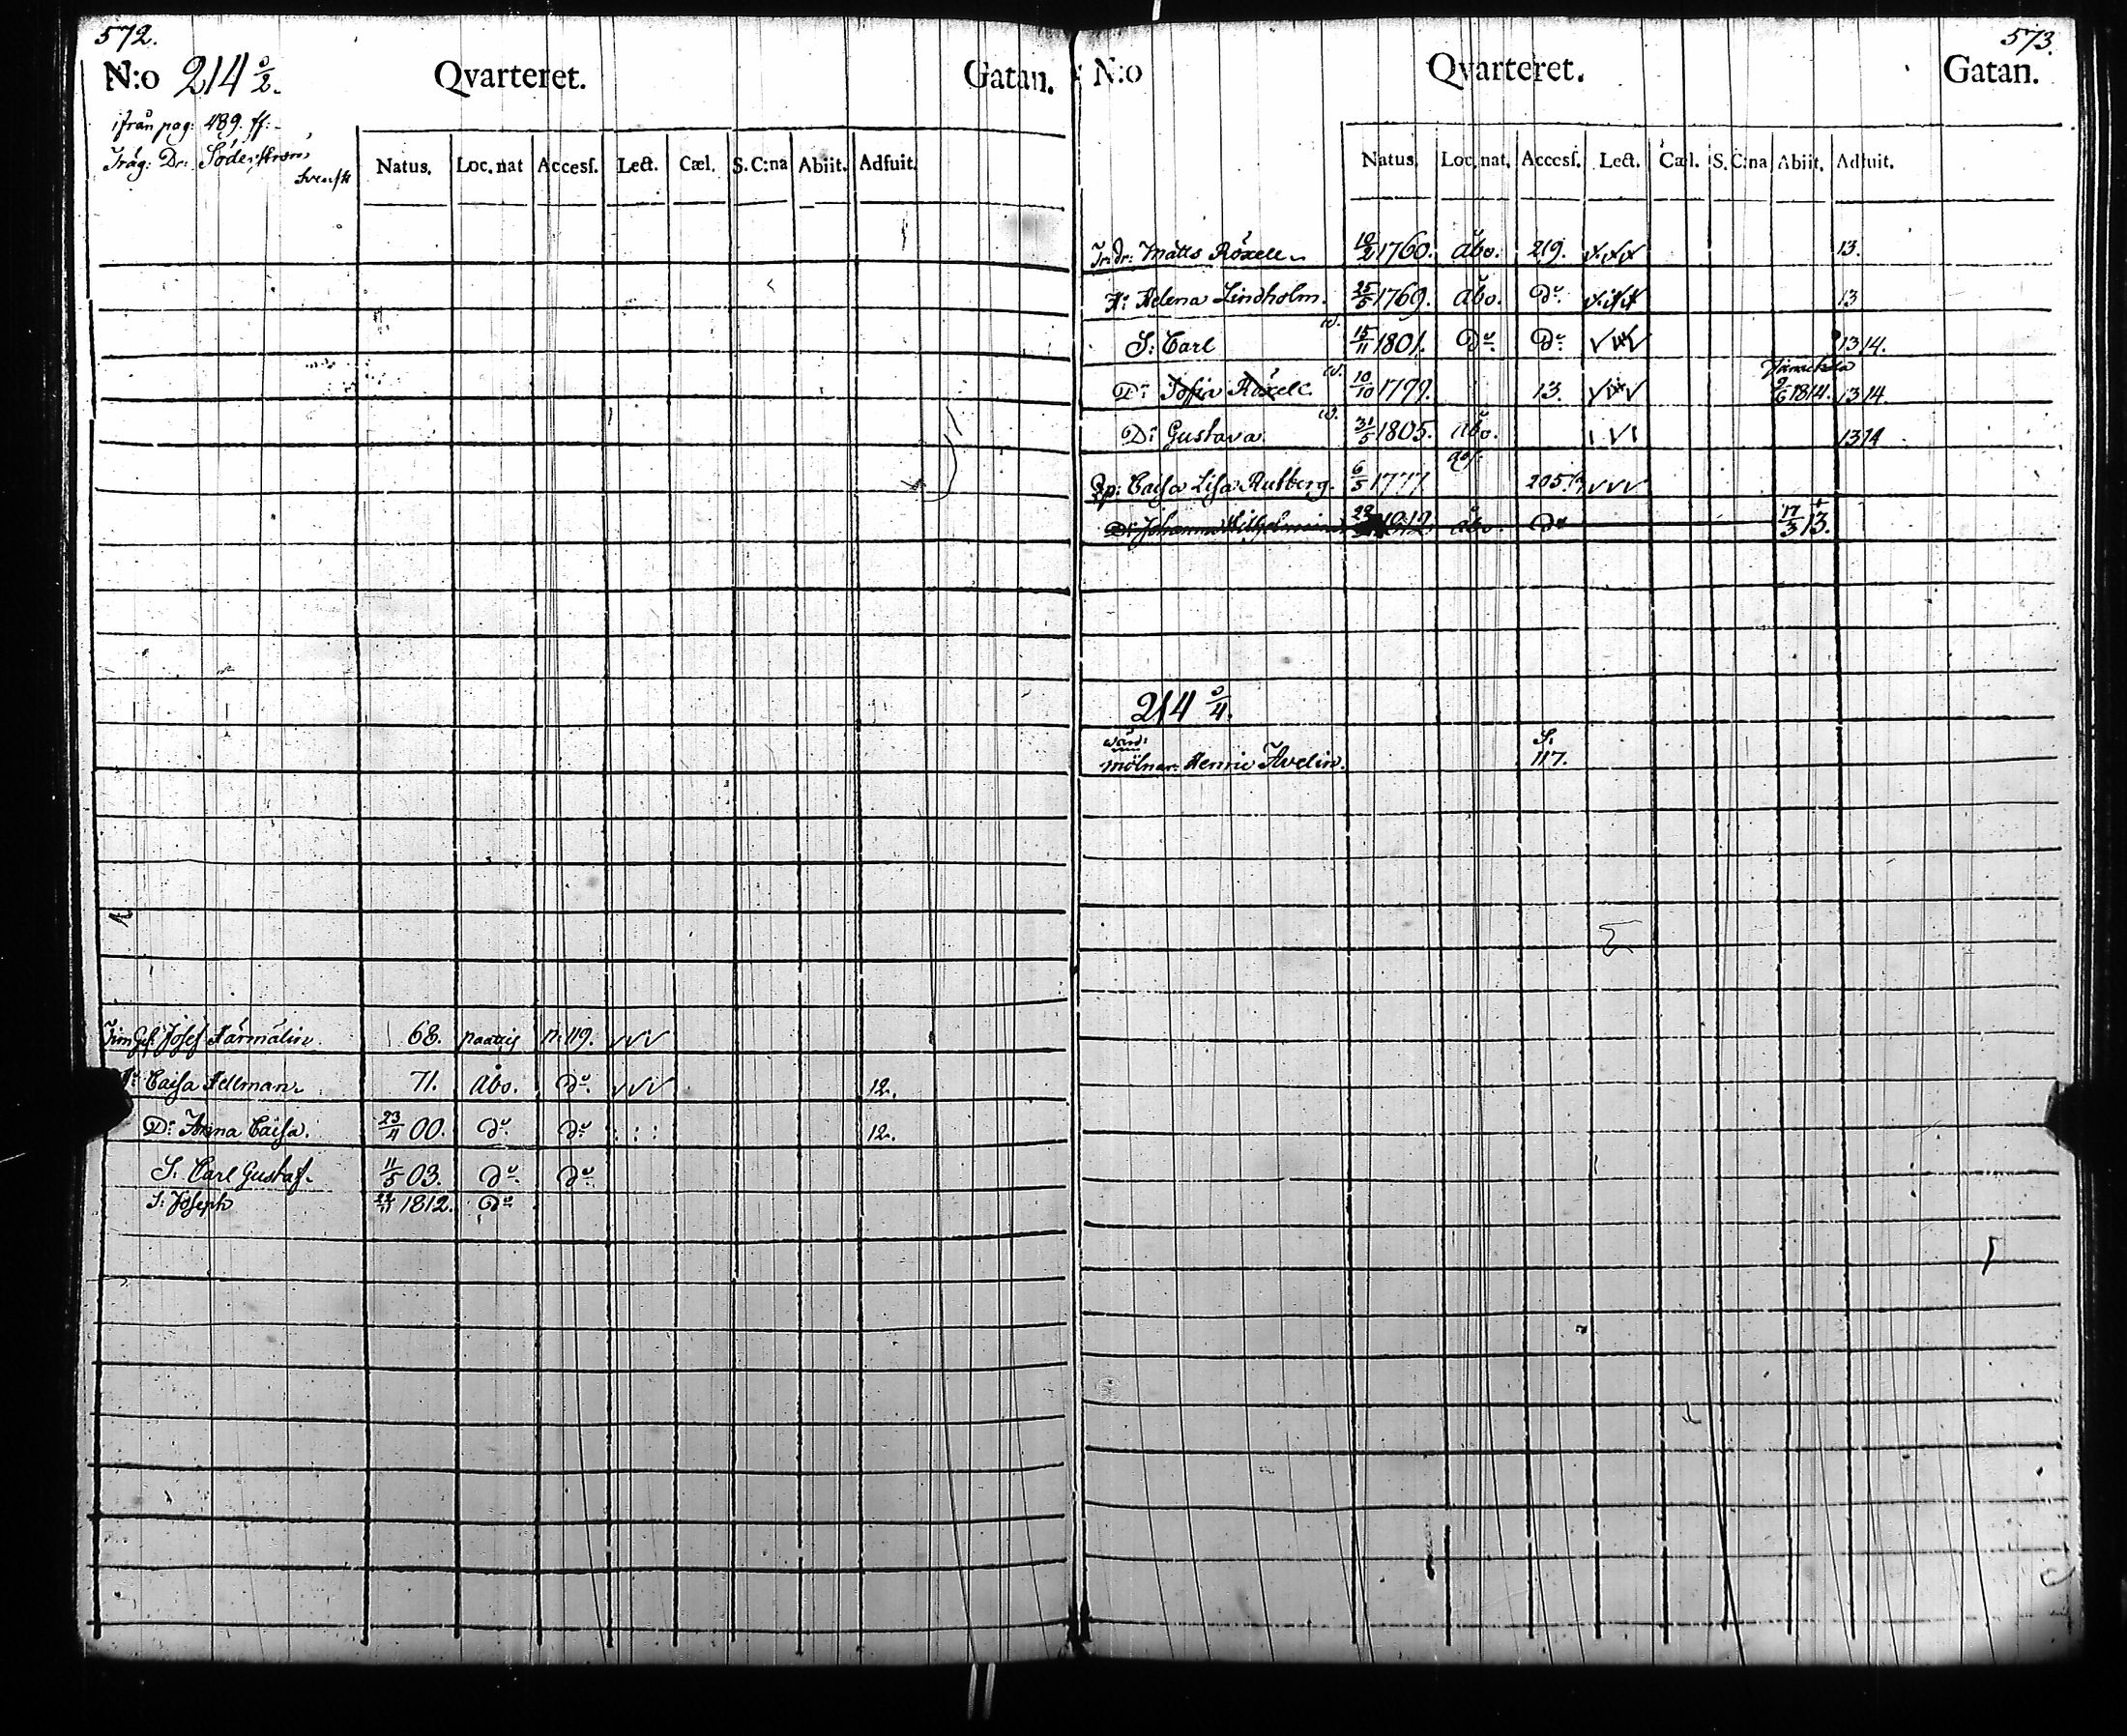 572.
N:o 214 0/2. Qvarteret. Gatan.
ifrån pag: 489. ff:
Träg: Dr: Söderström
Svensk
Natus. Loc. nat Accesſ. Lect. Cæl. S. C:na Abiit. Adfuit.
Josef Färmälin. 68. paattis n. 119.
Caisa Fellman. 71. Åbo. do 12.
D: Anna Caisa. 23/4 00. do do 12.
S. Carl Gustaf. 11/5 03. do do
S: Joseph 1812. do
573.
N:o Qvarteret. Gatan.
Natus. Loc. nat. Accesſ. Lect. Cæl. S. C:na Abiit. Adfuit.
Tr: dr: Matts Röxell 10/2 1760. Åbo. 219. 13.
H: Helena Lindholm. 25/5 1769. Åbo. do 13
S: Carl 15/11 1801. do do 13 14.
D: Sofia Röxell. 10/10 1799. 13. 1814. 13 14
D: Gustava 31/5 1805. Åbo. 13 14
Caisa Lisa Rutberg. 6/5 1777. 205.
D: Johanna Wilhelmina 1812. Åbo. do 17/3 13.
214 0/4.
wärd:
mölnar: Henric Avelin. S. 117.